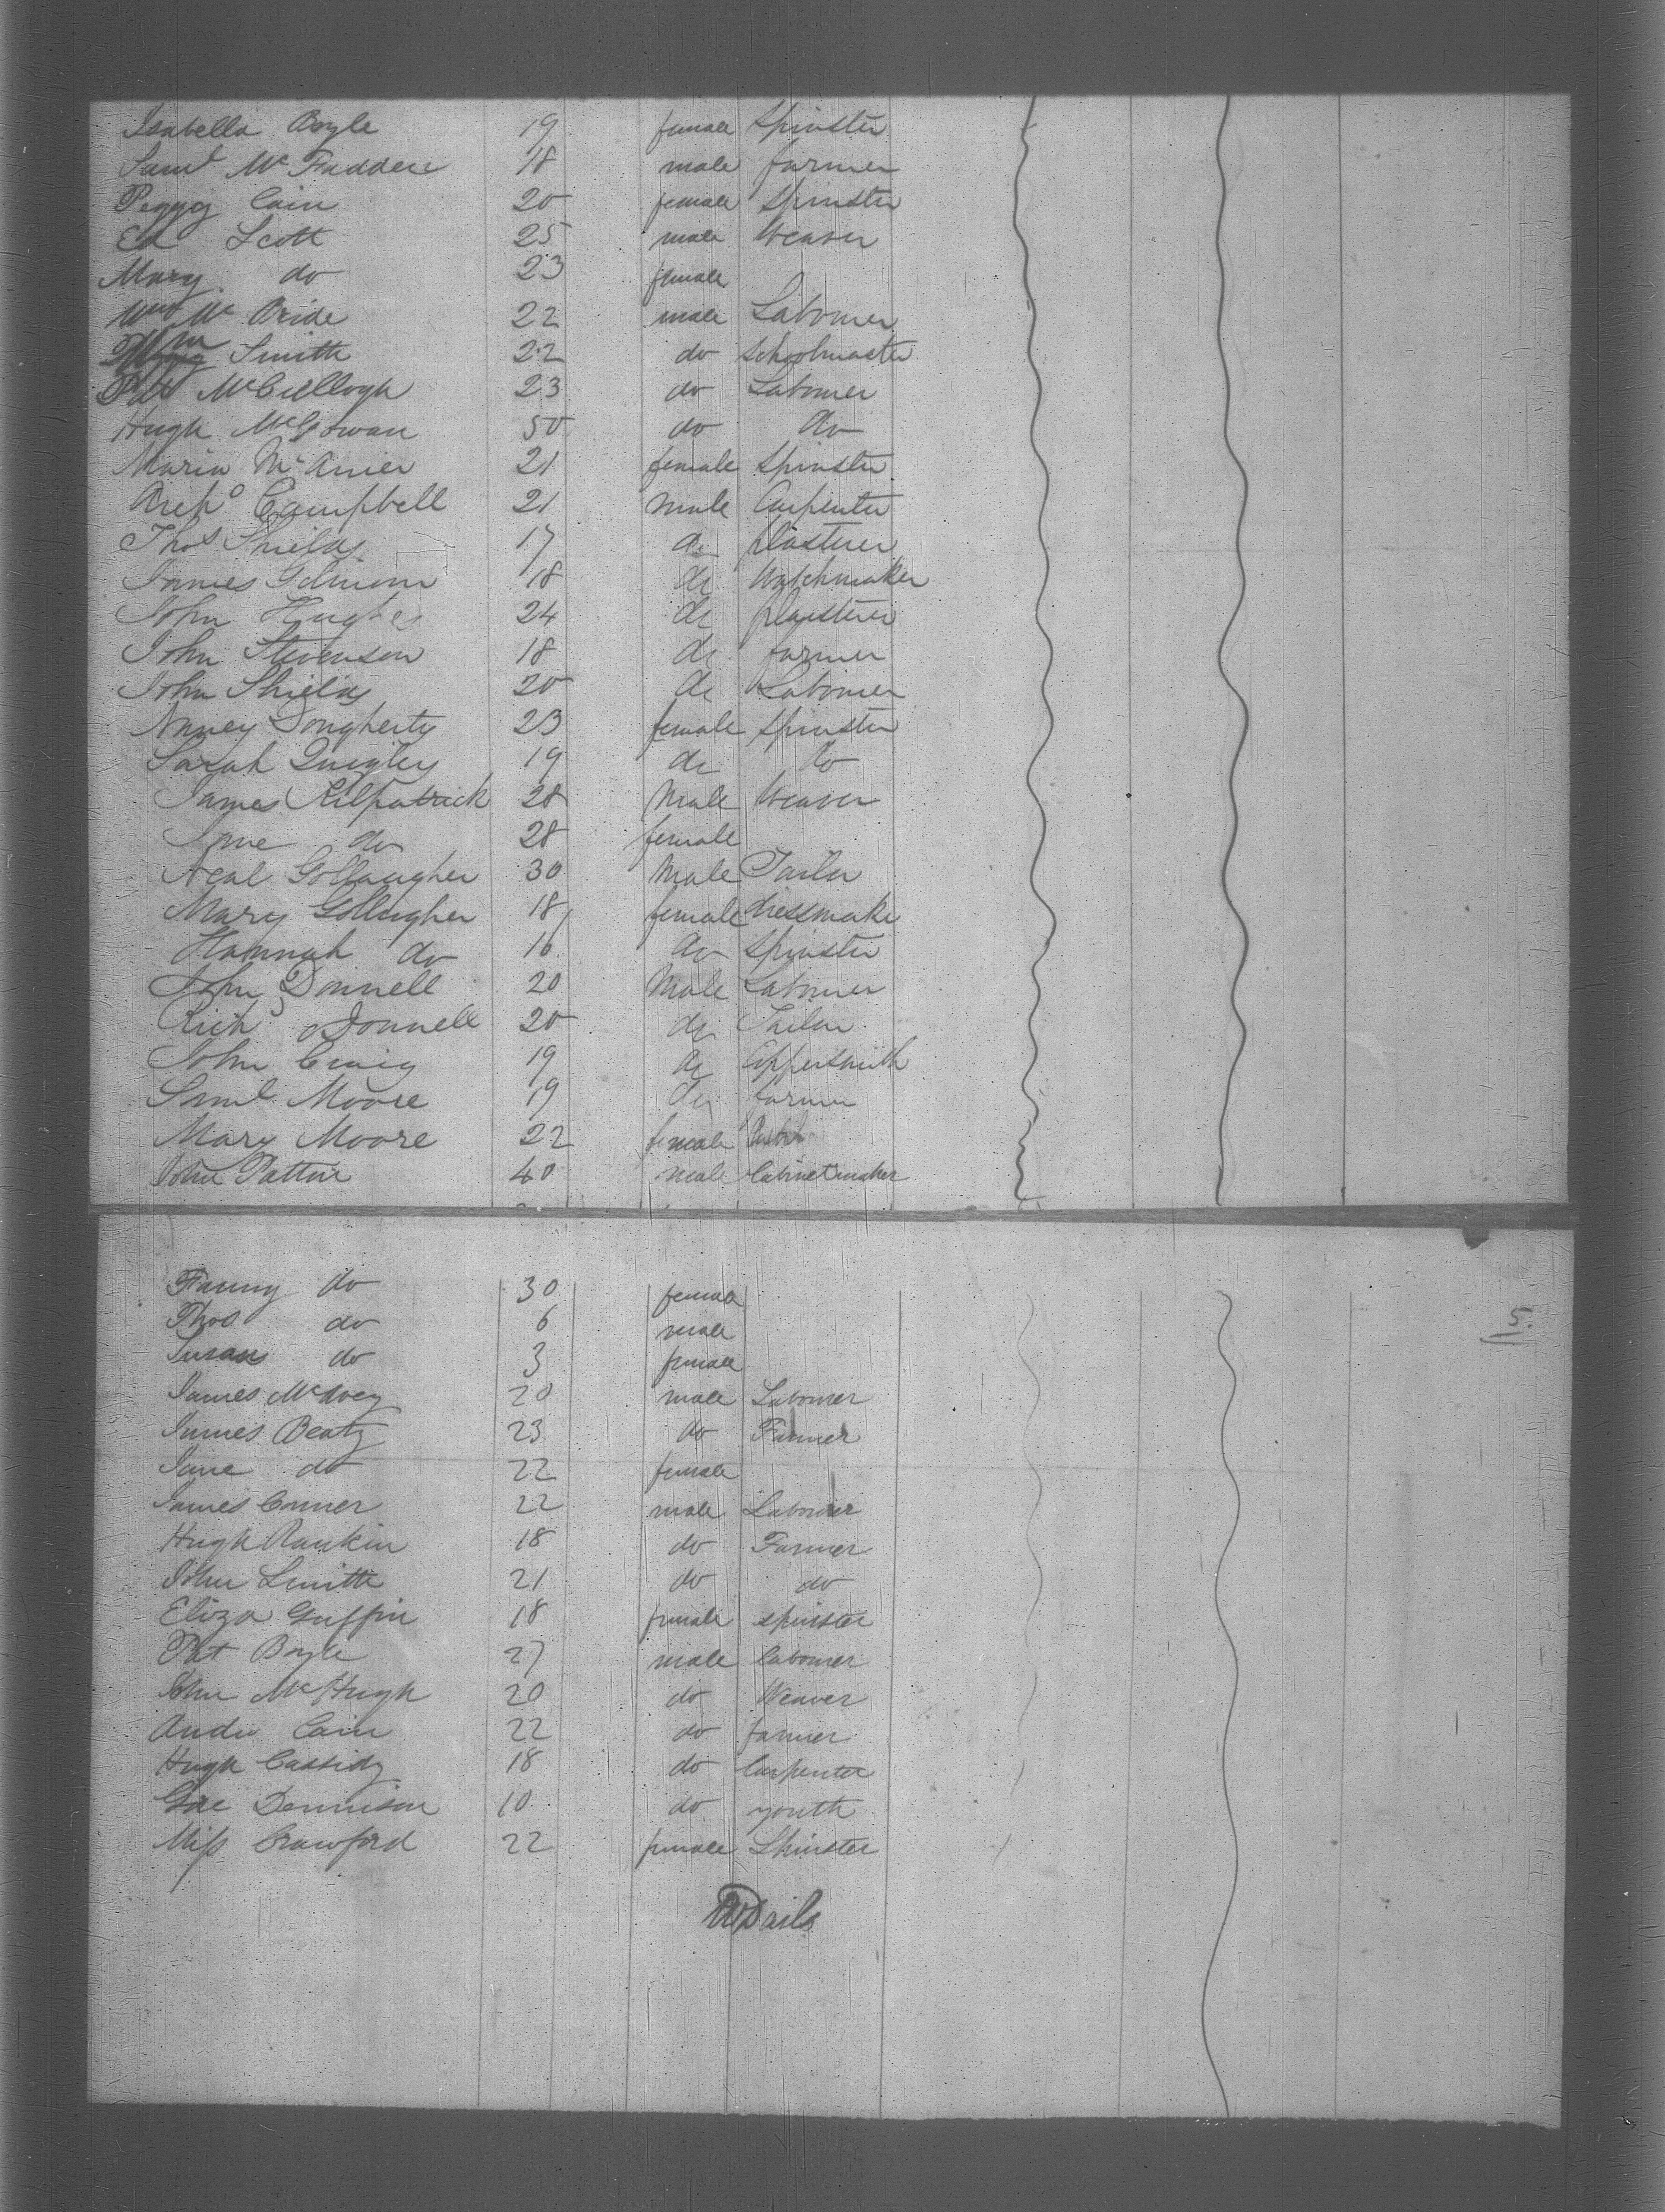 Isabella Boyle 19 female Spinster
Saml McFadden 18 male farmer
Peggy Cain 20 female Spinster
Ed Scott 25 male Weaver
Mary do 23 female
Wm Mc Bride 22 male Labourer
Wm Smith 22 do Schoolmaster
Pat McCullogh 23 do Labourer
Hugh McGowan 50 do do
Maria 21 female Spinster
Archd Campbell 21 Male Carpenter
Thos Shields 17 do plasterer
James 18 do Watchmaker
John Hughes 24 do plasterer
John Stevenson 18 do farmer
John Shields 20 do Labourer
Nancy Dougherty 23 female Spinster
Sarah Quigley 19 do do
James Kilpatrick 28 Male Weaver
Jane do 28 female
Neal Gollaugher 30 Male Tailor
Mary Gollugher 18 female dressmake
Hannah do 16 do Spinster
John Donnell 20 Male Labourer
Richd oDonnell 20 do Tailor
John Craig 19 do Coppersmith
Saml Moore 19 do farmer
Mary Moore 22 female
John Patton 40 male Cabinetmaker
Fanny do 30 female
Thos do 6 male
5.
Susan do 3 female
James McAvey 20 male Labourer
James Beaty 23 do Farmer
Jane do 22 female
James Conner 22 male Labourer
Hugh Rankin 18 do Farmer
John Smith 21 do do
Eliza Guffin 18 female spinster
Pat Boyle 27 male labourer
John McHugh 20 do Weaver
Andw Cain 22 do farmer
Hugh Cassidy 18 do Carpenter
Geo Dennison 10 do youth
Miss Crawford 22 female Spinster